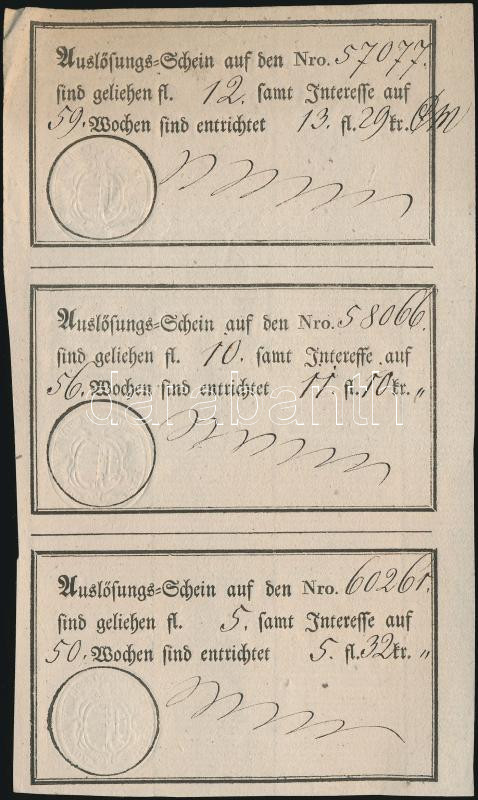 Auslösungs-Schein auf den Nro. 57077.
sind geliehen fl. 12. samt Interesse auf
59. Wochen sind entrichtet 13. fl. 29 kr. CM
Auslösungs-Schein auf den Nro. 58066.
sind geliehen fl. 10. samt Interesse auf
56. Wochen sind entrichtet 11. fl. 10 kr. „
darabanth
Auslösungs-Schein auf den Nro. 60261.
sind geliehen fl. 5. samt Interesse auf
50. Wochen sind entrichtet 5. fl. 32 kr. „